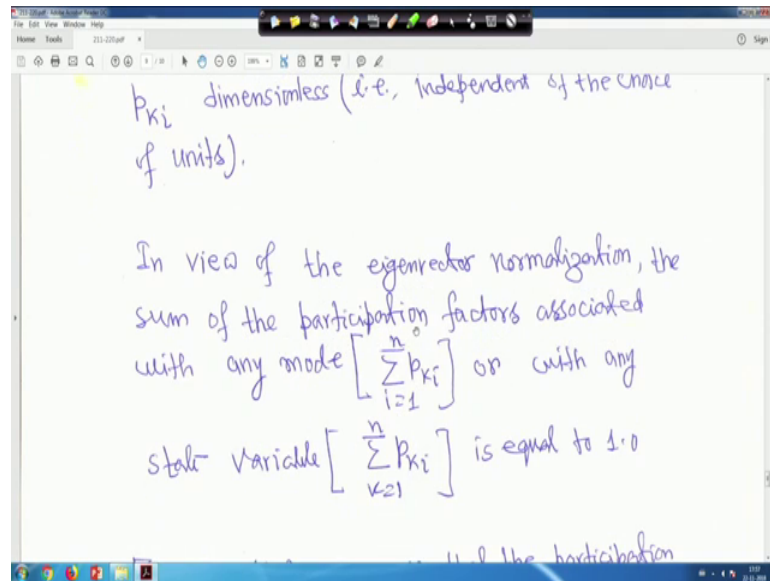 211-220.pdf - Adobe Acrobat Reader DC
File Edit View Window Help
Home Tools 211-220.pdf × Sign
p_Ki dimensionless (i.e., independent of the choice
of units).
In view of the eigenvector normalization, the
sum of the participation factors associated
with any mode [ n∑i=1 p_Ki ] or with any
state variable [ n∑k=1 p_Ki ] is equal to 1.0
the participation
17:57